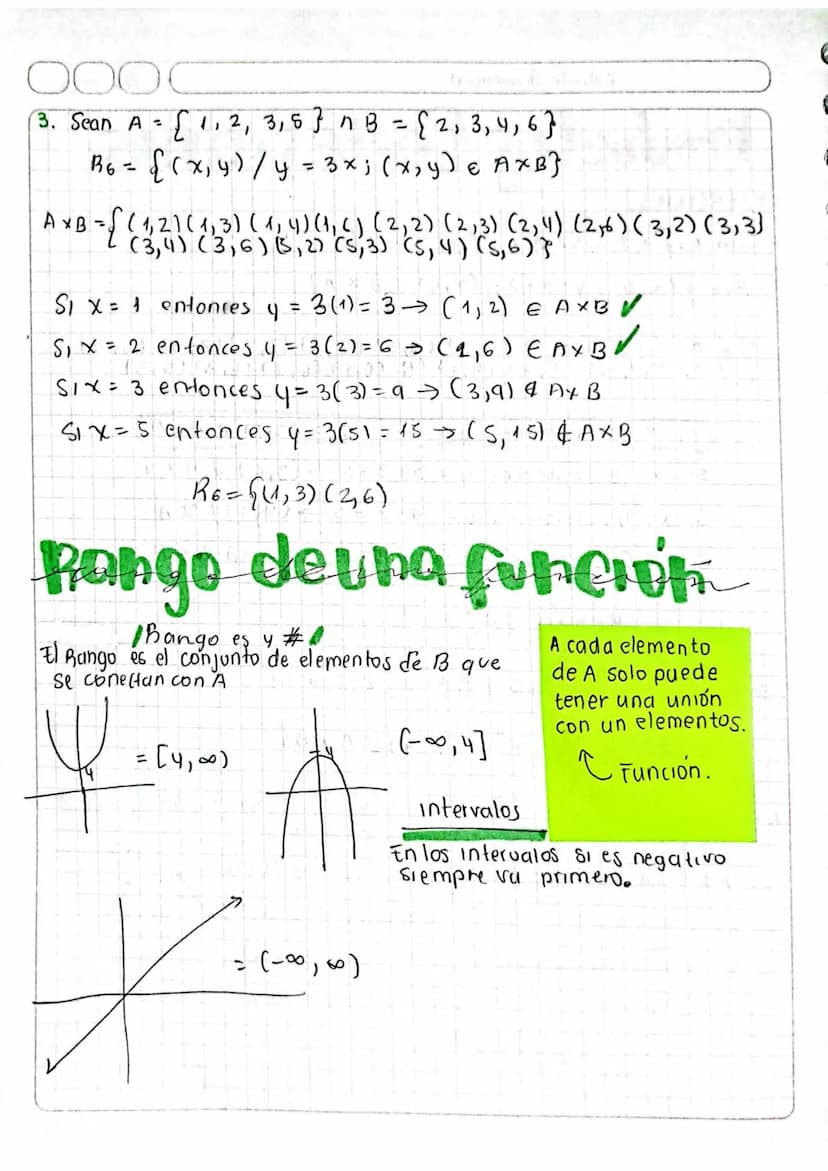 3. Sean A = { 1, 2, 3, 5 } ∩ B = { 2, 3, 4, 6 }
R6 = { (x, y) / y = 3x ; (x, y) ∈ A×B}
A×B = { (1,2) (1,3) (1,4) (1,6) (2,2) (2,3) (2,4) (2,6) (3,2) (3,3)
(3,4) (3,6) (5,2) (5,3) (5,4) (5,6) }
Si x = 1 entonces y = 3(1) = 3 → (1,2) ∈ A×B ✓
Si x = 2 entonces y = 3(2) = 6 → (2,6) ∈ A×B ✓
Si x = 3 entonces y = 3(3) = 9 → (3,9) ∉ A×B
Si x = 5 entonces y = 3(5) = 15 → (5,15) ∉ A×B
R6 = {(1,3) (2,6)
Rango de una función
Rango es y #
El Rango es el conjunto de elementos de B que
se conectan con A
A cada elemento
de A solo puede
tener una unión
con un elementos.
Función.
4
= [4, ∞)
4
(-∞, 4]
intervalos
En los intervalos si es negativo
siempre va primero.
= (-∞, ∞)